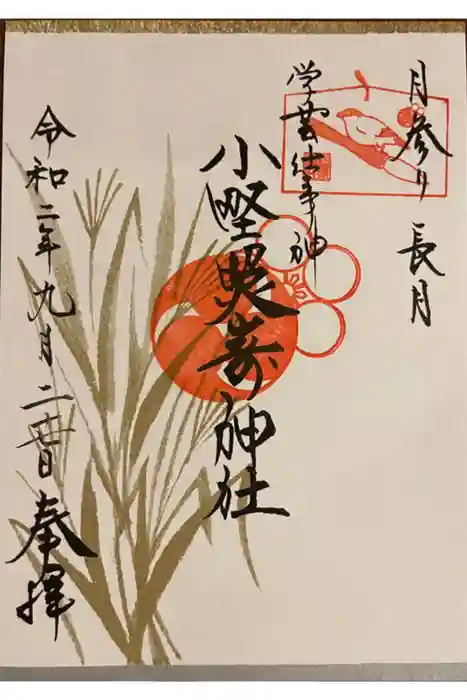 月参り 長月
学芸仕事神
小野照嵜神社
令和二年九月二十日 奉拝